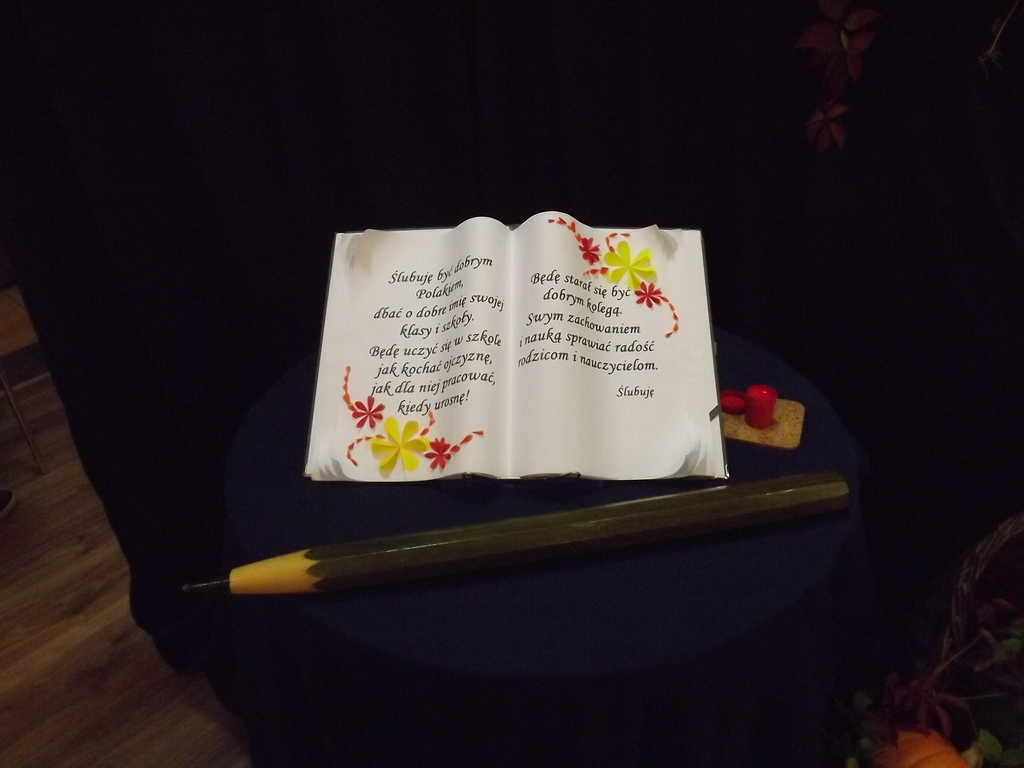 Ślubuję być dobrym
Polakiem,
dbać o dobre imię swojej
klasy i szkoły.
Będę uczyć się w szkole
jak kochać ojczyznę,
jak dla niej pracować,
kiedy urosnę!
Będę starał się być
dobrym kolegą.
Swym zachowaniem
i nauką sprawiać radość
rodzicom i nauczycielom.
Ślubuję